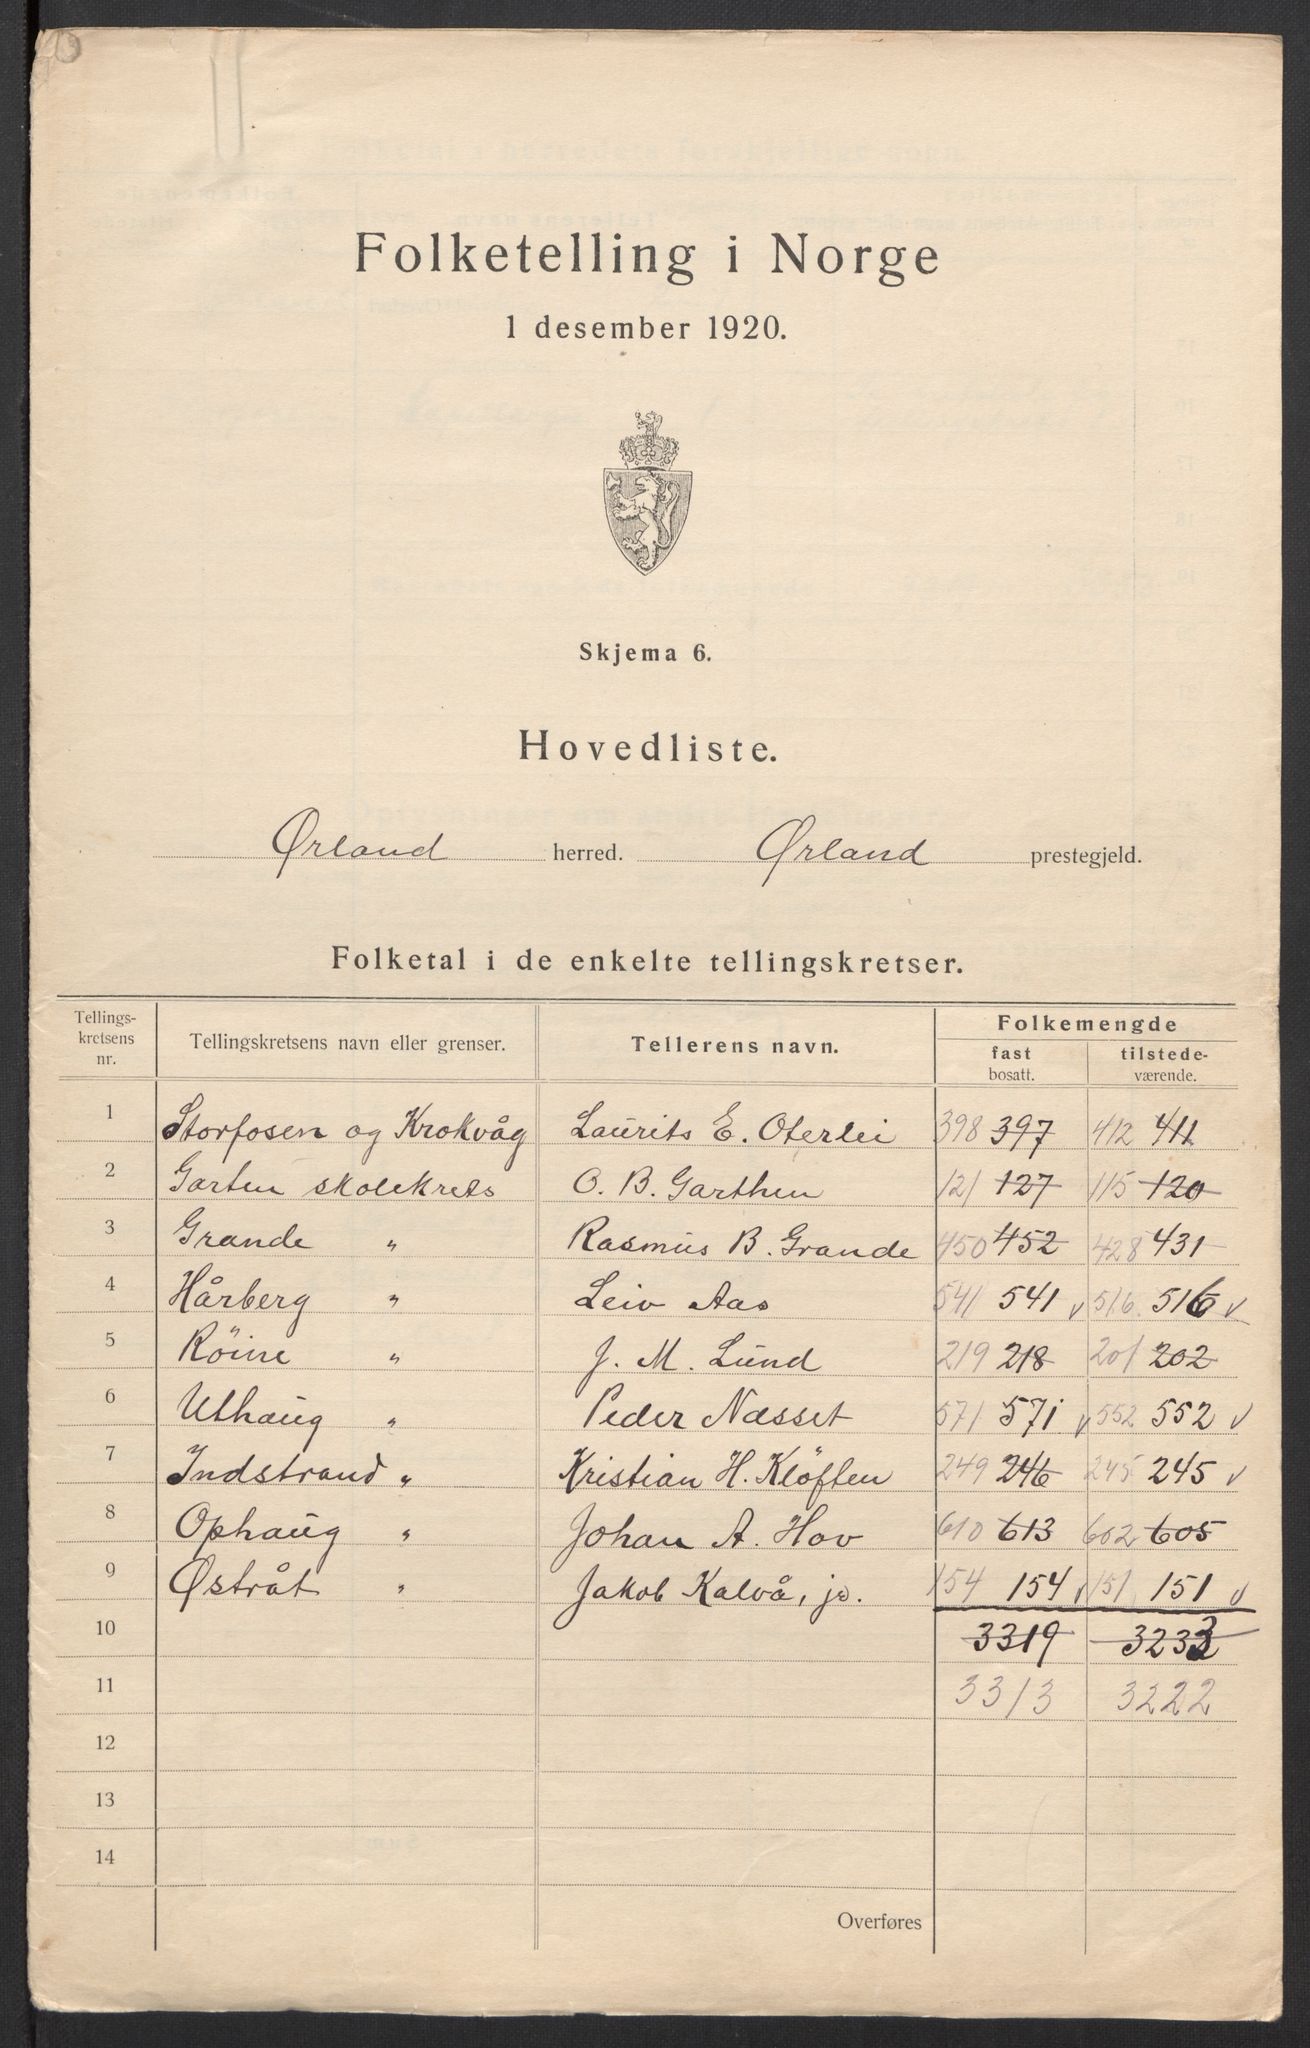 Folketelling i Norge
1 desember 1920.
Skjema 6.
Hovedliste.
Ørland herred. Ørland prestegjeld.
Folketal i de enkelte tellingskretser.
Tellings-kretsens nr. Tellingskretsens navn eller grenser. Tellerens navn. Folkemengde
fast bosatt. tilstede-værende.
1 Storfosen og Krokvåg Laurits E. Oterlei 398 397 412 411
2 Garten skolekrets O. B. Garthen 121 127 115 120
3 Grande " Rasmus B. Grande 450 452 428 431
4 Hårberg " Leiv Aas 541 541 v 516 516 v
5 Röine " J. M. Lund 219 218 201 202
6 Uthaug " Peder Næsset 571 571 v 552 552 v
7 Indstrand " Kristian H. Klöften 249 246 245 245 v
8 Ophaug " Johan A. Hov 610 613 602 605
9 Østråt " Jakob Kalvå, jr. 154 154 v 151 151 v
10 3319 3233
11 3313 3222
12
13
14
Overføres